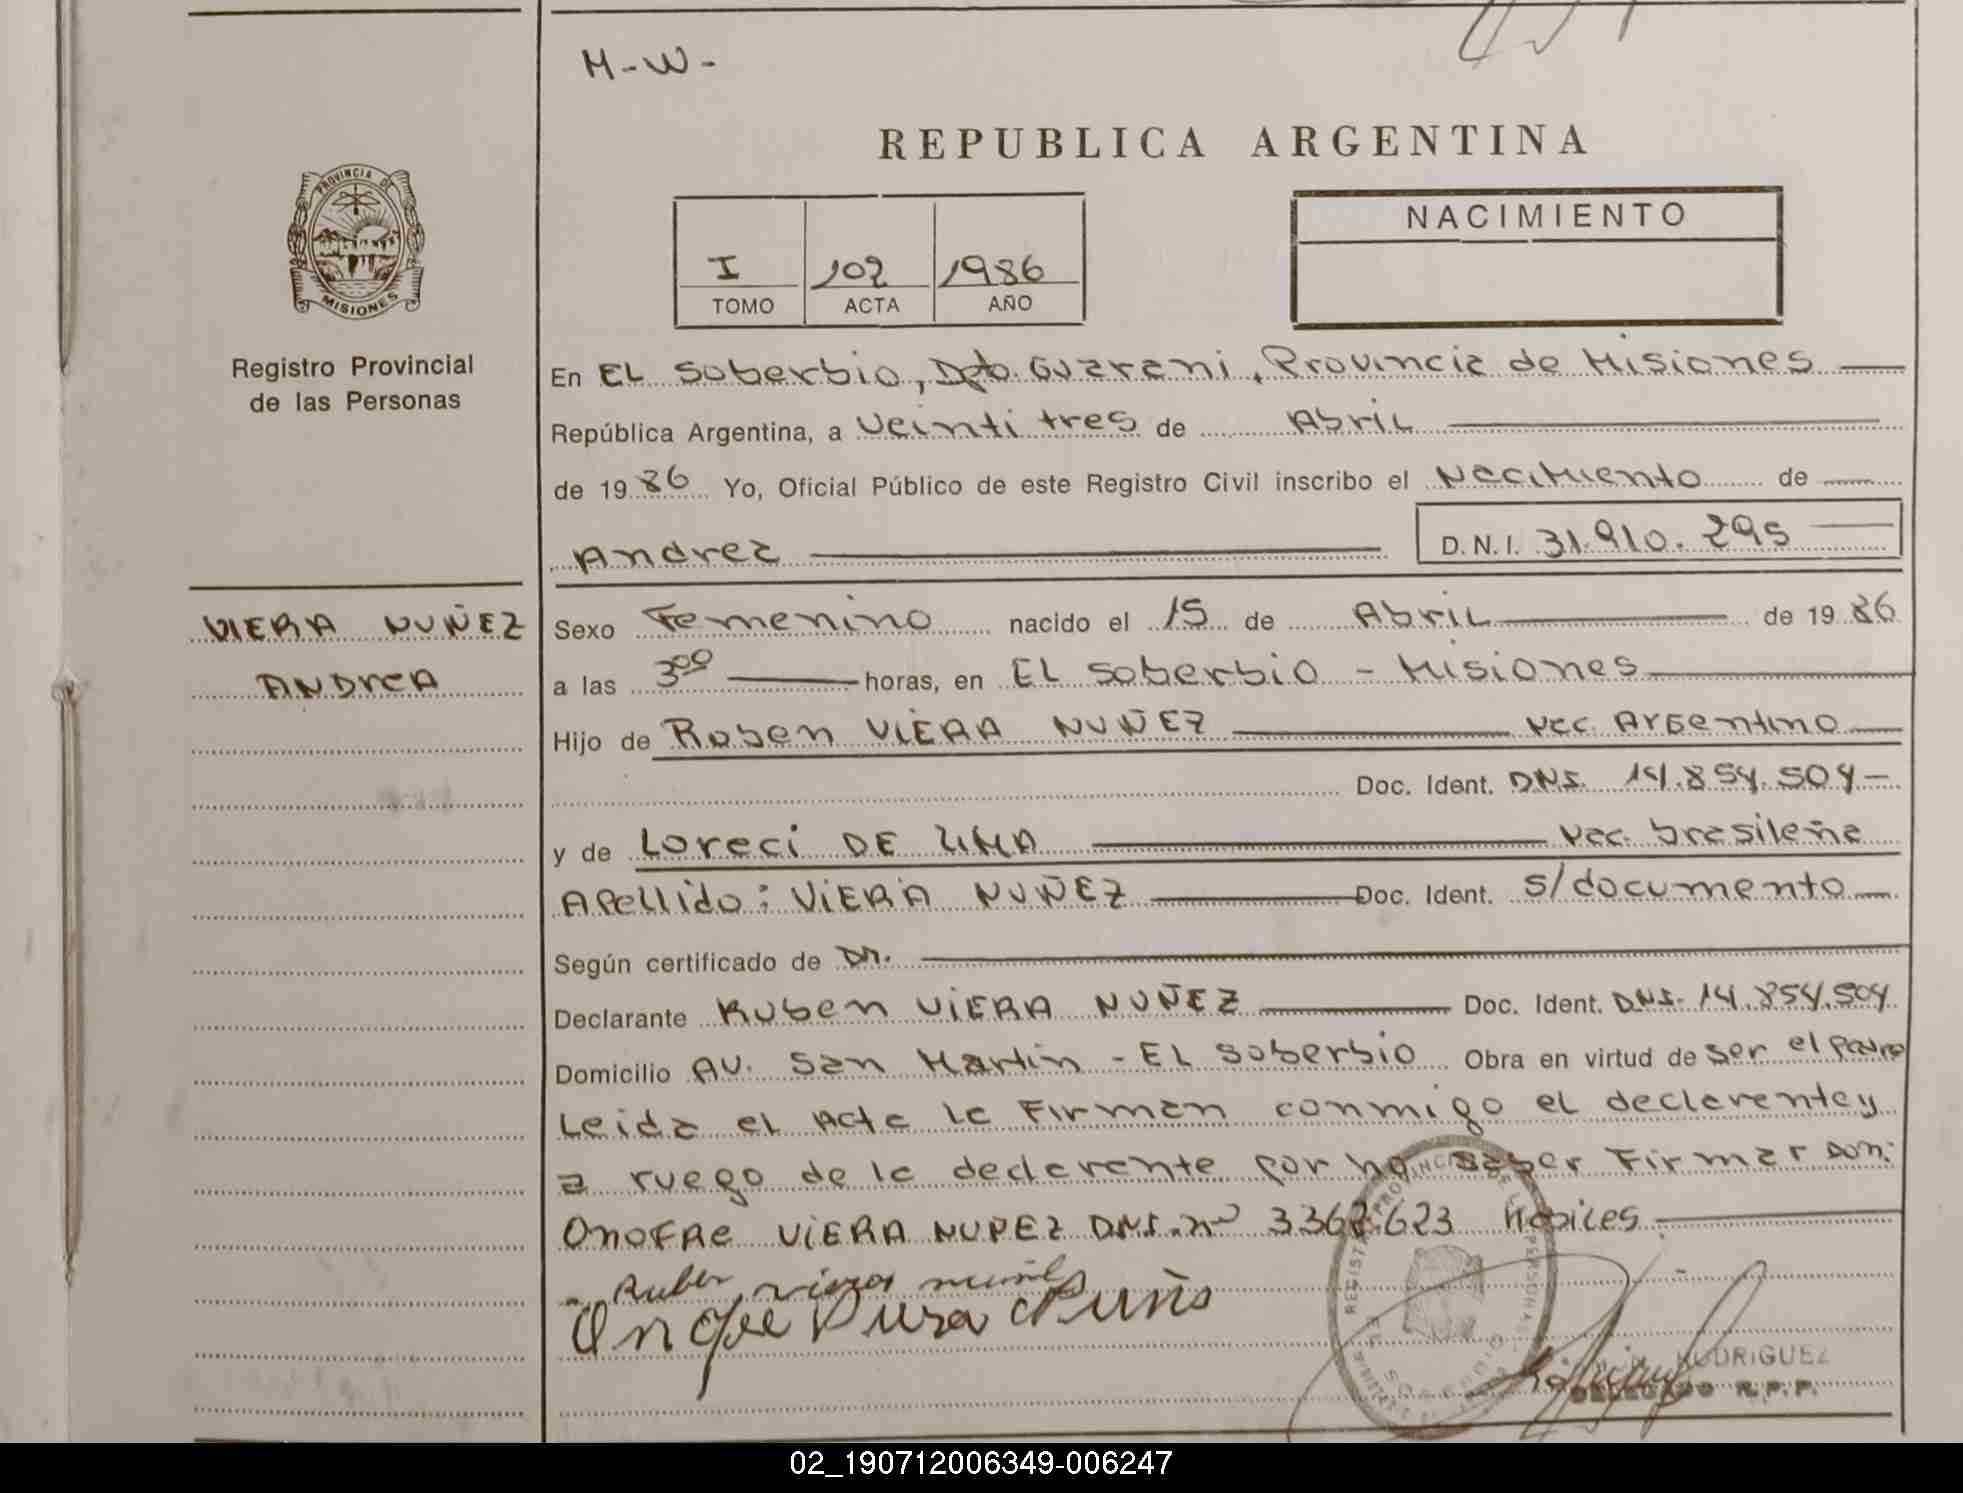 M-W-
REPUBLICA ARGENTINA
PROVINCIA DE
MISIONES
Registro Provincial
de las Personas
I 102 1986
TOMO ACTA AÑO
NACIMIENTO
En EL Soberbio, Dpto. Guarani, Provincia de Misiones
República Argentina, a Veinti tres de Abril
de 1986 Yo, Oficial Público de este Registro Civil inscribo el Nacimiento de
Andrea D.N.I. 31.910.295
VIERA NUÑEZ
ANDREA
Sexo Femenino nacido el 15 de Abril de 1986
a las 3⁰⁰ horas, en EL Soberbio - Misiones
Hijo de Ruben VIERA NUÑEZ Nac. Argentino
Doc. Ident. DNI. 14.854.504
y de Loreci DE LIMA Nac. brasileña
Apellido: VIERA NUÑEZ Doc. Ident. S/documento
Según certificado de Dr.
Declarante Ruben VIERA NUÑEZ Doc. Ident. DNI. 14.854.504
Domicilio AV. San Martin - EL Soberbio Obra en virtud de ser el Padre
Leida el Acta la Firman conmigo el declarente y
a ruego de la declarente por no saber Firmar Don:
Onofre VIERA NUÑEZ DNI. nº 623 Habiles
Ruben viera nuñez
Onofre
RODRIGUEZ
DELEGADO R.P.P.
02_190712006349-006247